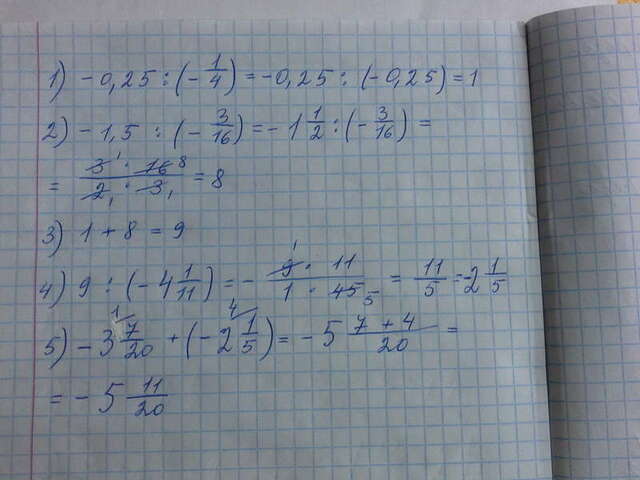 1) -0,25 : (- 1/4) = -0,25 : (-0,25) = 1
2) -1,5 : (- 3/16) = -1 1/2 : (- 3/16) =
= 3 1 · 16 8 / 2 1 · 3 1 = 8
3) 1 + 8 = 9
4) 9 : (-4 1/11) = - 9 1 · 11 / 1 · 45 5 = 11/5 = -2 1/5
5) -3 7/20 1 + (-2 1/5 4) = -5 7 + 4 / 20 =
= -5 11/20